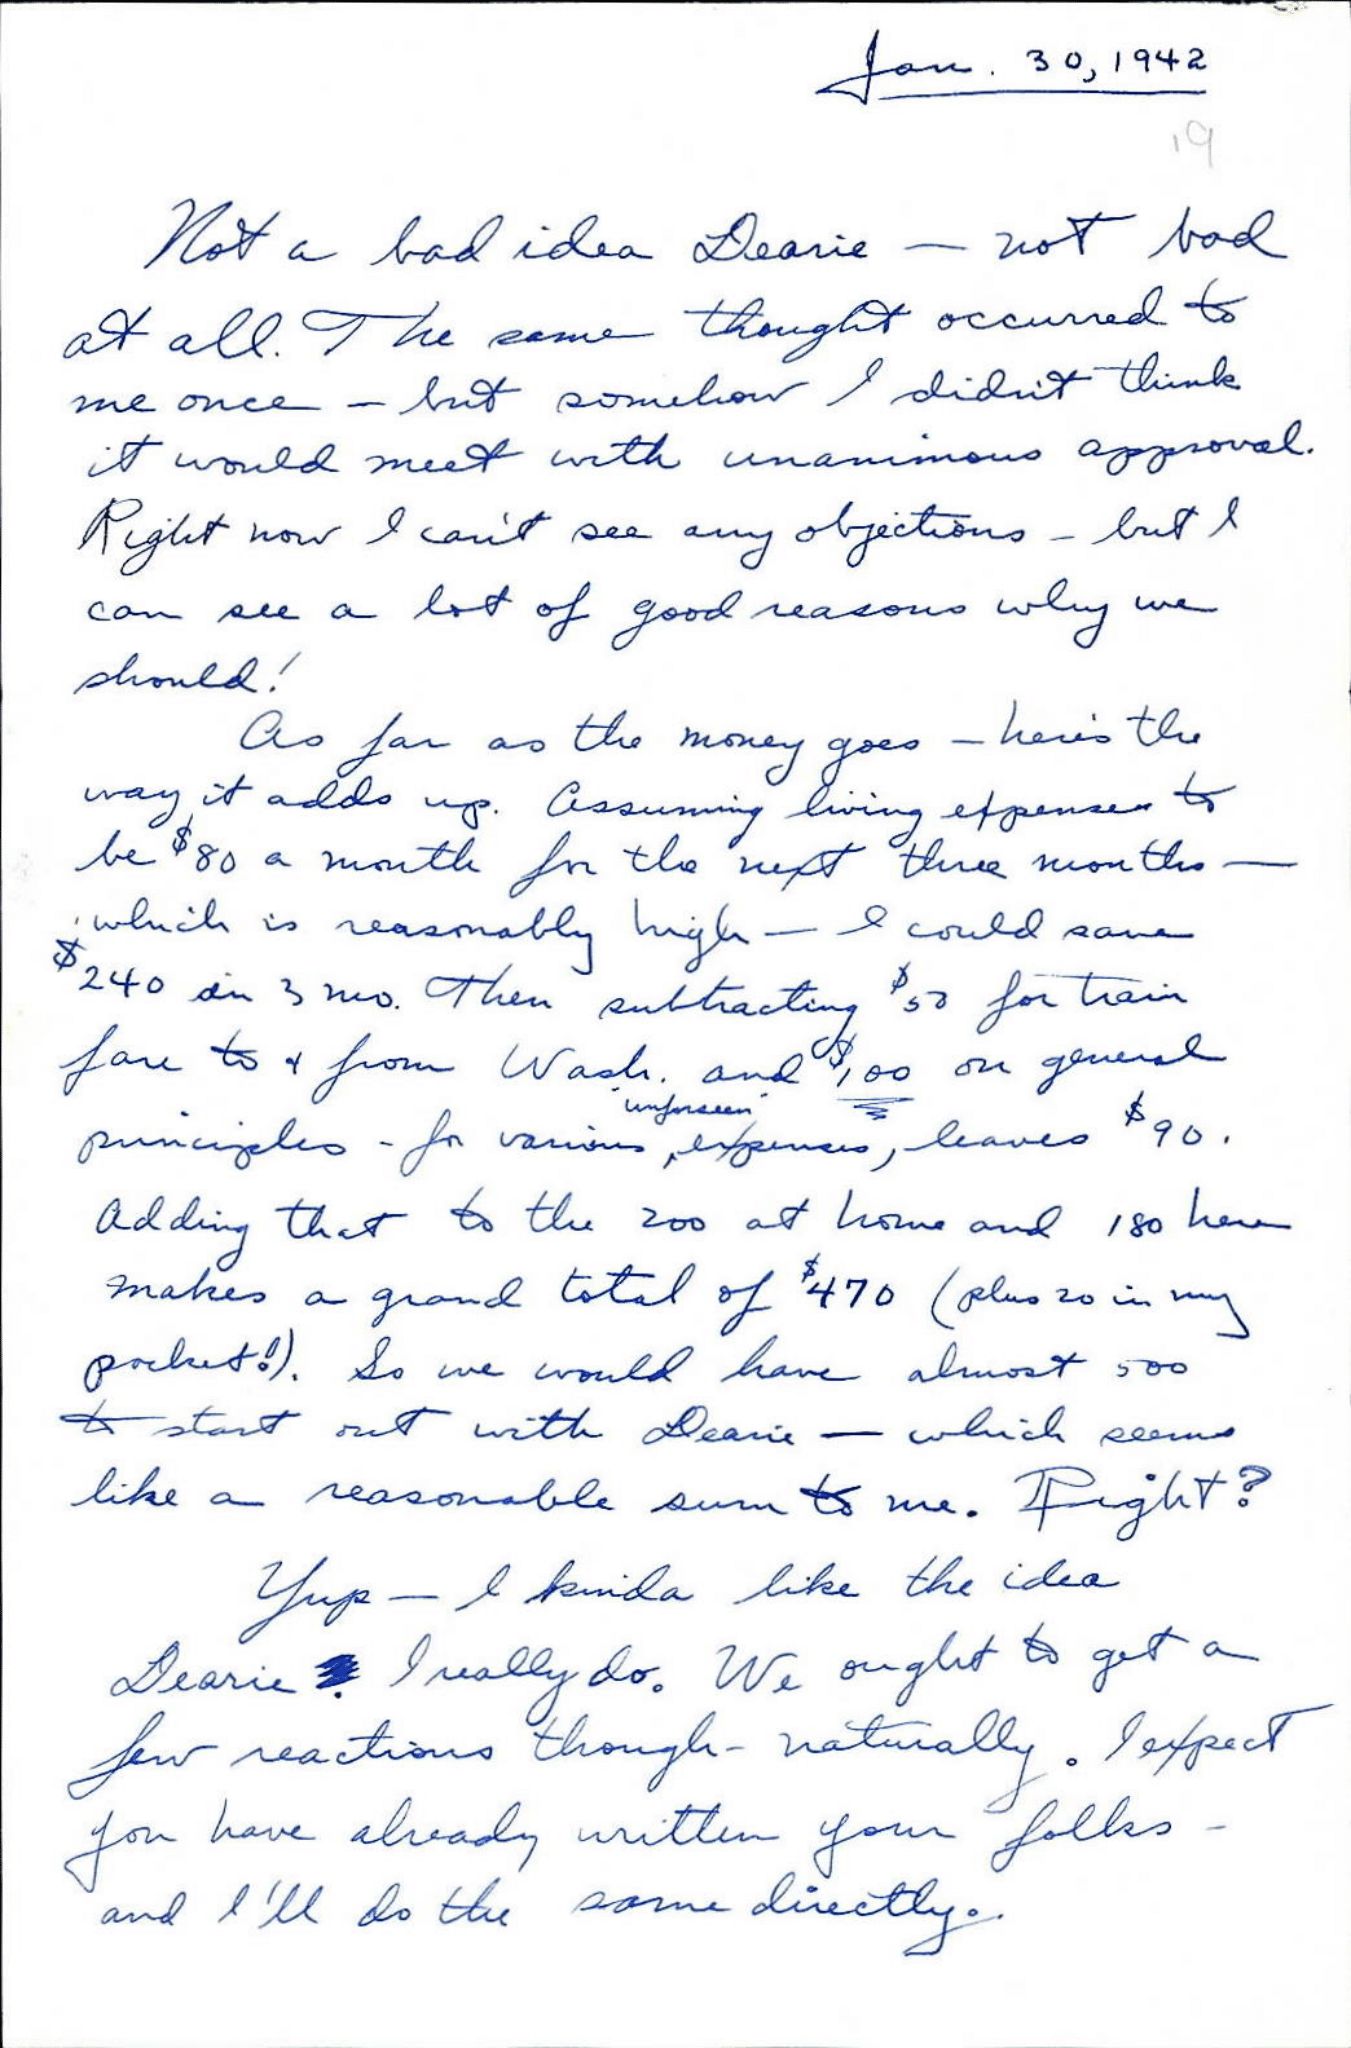 Jan. 30, 1942
19
Not a bad idea Dearie — not bad
at all. The same thought occurred to
me once – but somehow I didn't think
it would meet with unanimous approval.
Right now I can't see any objections – but I
can see a lot of good reasons why we
should!
As far as the money goes – here's the
way it adds up. Assuming living expenses to
be $80 a month for the next three months —
which is reasonably high — I could save
$240 in 3 mo. Then subtracting $50 for train
fare to & from Wash. and $100 on general
"unforseen"
principles - for various expenses, leaves $90.
Adding that to the 200 at home and 180 here
makes a grand total of $470 (plus 20 in my
pocket!). So we would have almost 500
to start out with Dearie — which seems
like a reasonable sum to me. Right?
Yup — I kinda like the idea
Dearie. I really do. We ought to get a
few reactions though - naturally. I expect
you have already written your folks -
and I'll do the same directly.